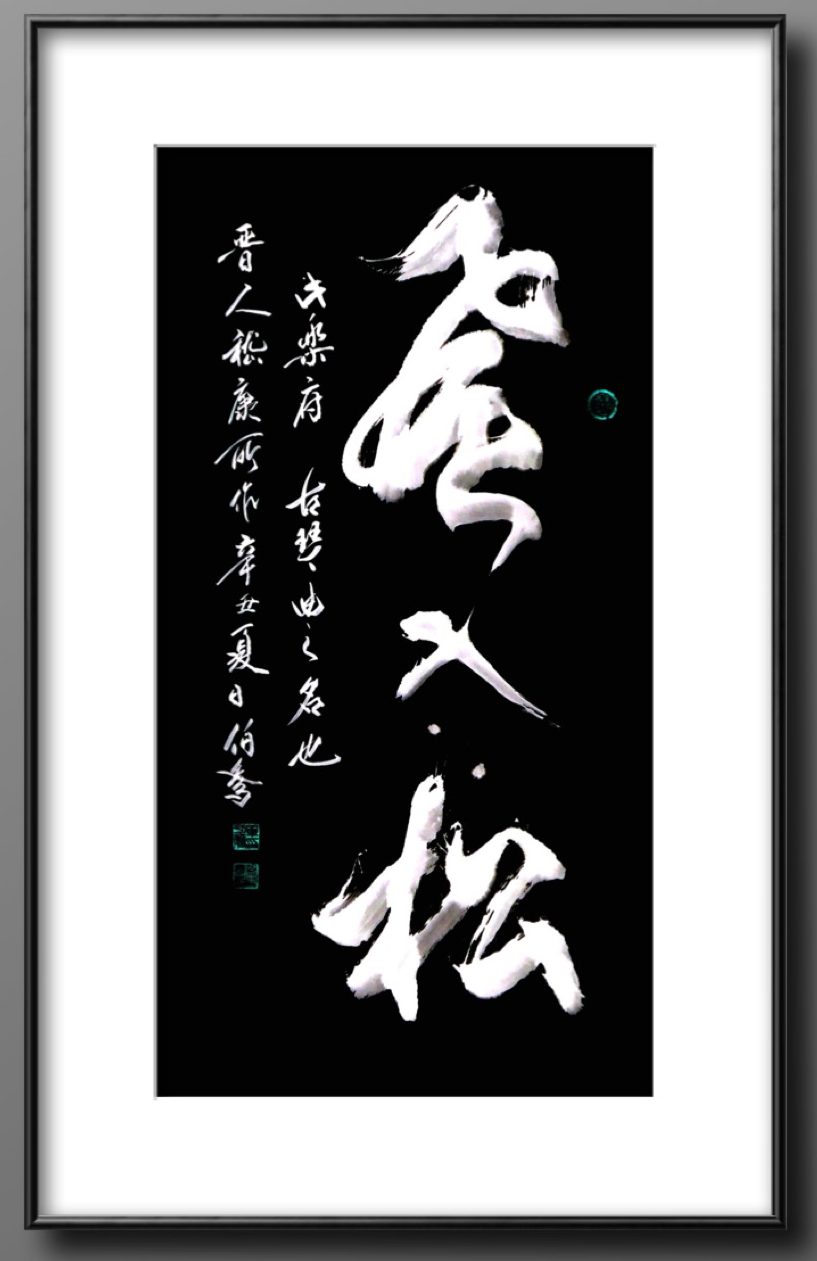 風入松
樂府 古琴曲之名也
晋人嵇康所作辛丑夏日伯